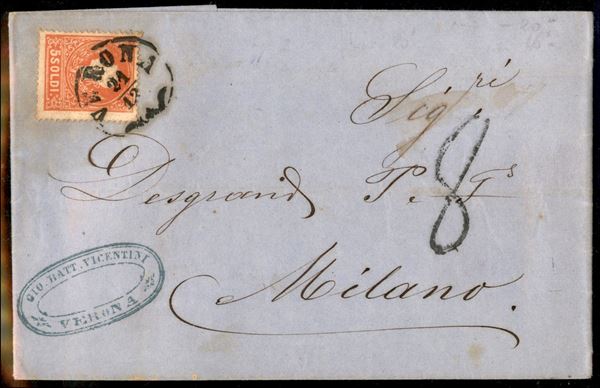 5 SOLDI
VERONA
21
12
Sig.ri
Desgrand P. F.s
8
Milano.
GIO. BATT. VICENTINI
VERONA